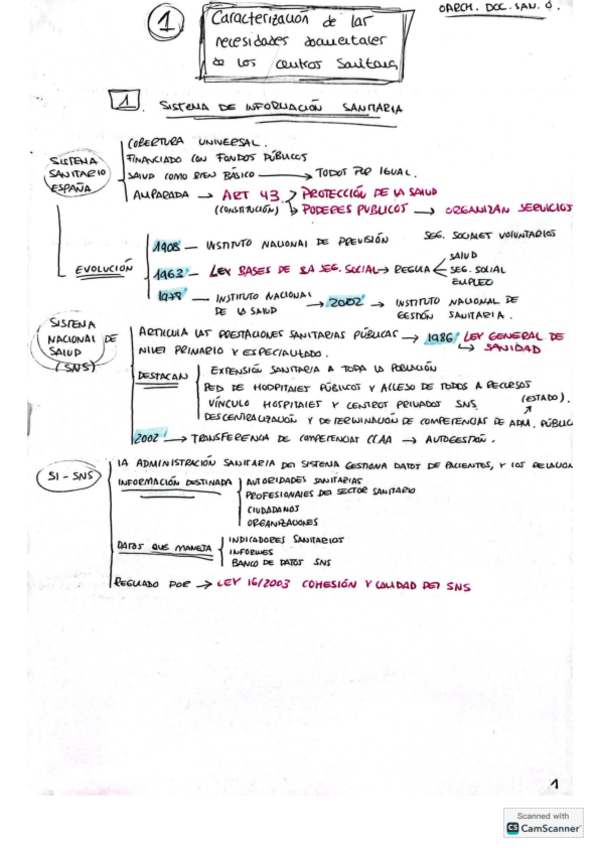 OARCH. DOC. SAN.
1
Caracterización de las
necesidades documentales
de los centros Sanitarios
1. SISTEMA DE INFORMACIÓN SANITARIA
SISTEMA
SANITARIO
ESPAÑA
COBERTURA UNIVERSAL.
FINANCIADO CON FONDOS PÚBLICOS
SALUD COMO BIEN BÁSICO → TODOS POR IGUAL.
AMPARADA → ART 43 → PROTECCIÓN DE LA SALUD
(CONSTITUCIÓN) → PODERES PUBLICOS → ORGANIZAN SERVICIOS
EVOLUCIÓN
1908 - INSTITUTO NACIONAL DE PREVISIÓN
SEG. SOCIALES VOLUNTARIOS
1963 - LEY BASES DE LA SEG. SOCIAL → REGULA
SALUD
SEG. SOCIAL
EMPLEO
1978 - INSTITUTO NACIONAL
DE LA SALUD
→ 2002 → INSTITUTO NACIONAL DE
GESTIÓN SANITARIA.
SISTEMA
NACIONAL DE
SALUD
(SNS)
ARTICULA LAS PRESTACIONES SANITARIAS PÚBLICAS → 1986 LEY GENERAL DE
→ SANIDAD
NIVEL PRIMARIO Y ESPECIALIZADO.
DESTACAN
EXTENSIÓN SANITARIA A TODA LA POBLACIÓN
RED DE HOSPITALES PÚBLICOS Y ACCESO DE TODOS A RECURSOS
VÍNCULO HOSPITALES Y CENTROS PRIVADOS SNS.
(ESTADO).
DESCENTRALIZACIÓN Y DETERMINACIÓN DE COMPETENCIAS DE ADM. PÚBLIC
2002 → TRANSFERENCIA DE COMPETENCIAS CCAA → AUTOGESTIÓN.
SI - SNS
LA ADMINISTRACIÓN SANITARIA DEL SISTEMA GESTIONA DATOS DE PACIENTES, Y LOS RELACION
INFORMACIÓN DESTINADA
AUTORIDADES SANITARIAS
PROFESIONALES DEL SECTOR SANITARIO
CIUDADANOS
ORGANIZACIONES
DATOS QUE MANEJA
INDICADORES SANITARIOS
INFORMES
BANCO DE DATOS SNS
REGULADO POR → LEY 16/2003 COHESIÓN Y CALIDAD DEL SNS
1
Scanned with
CS CamScanner